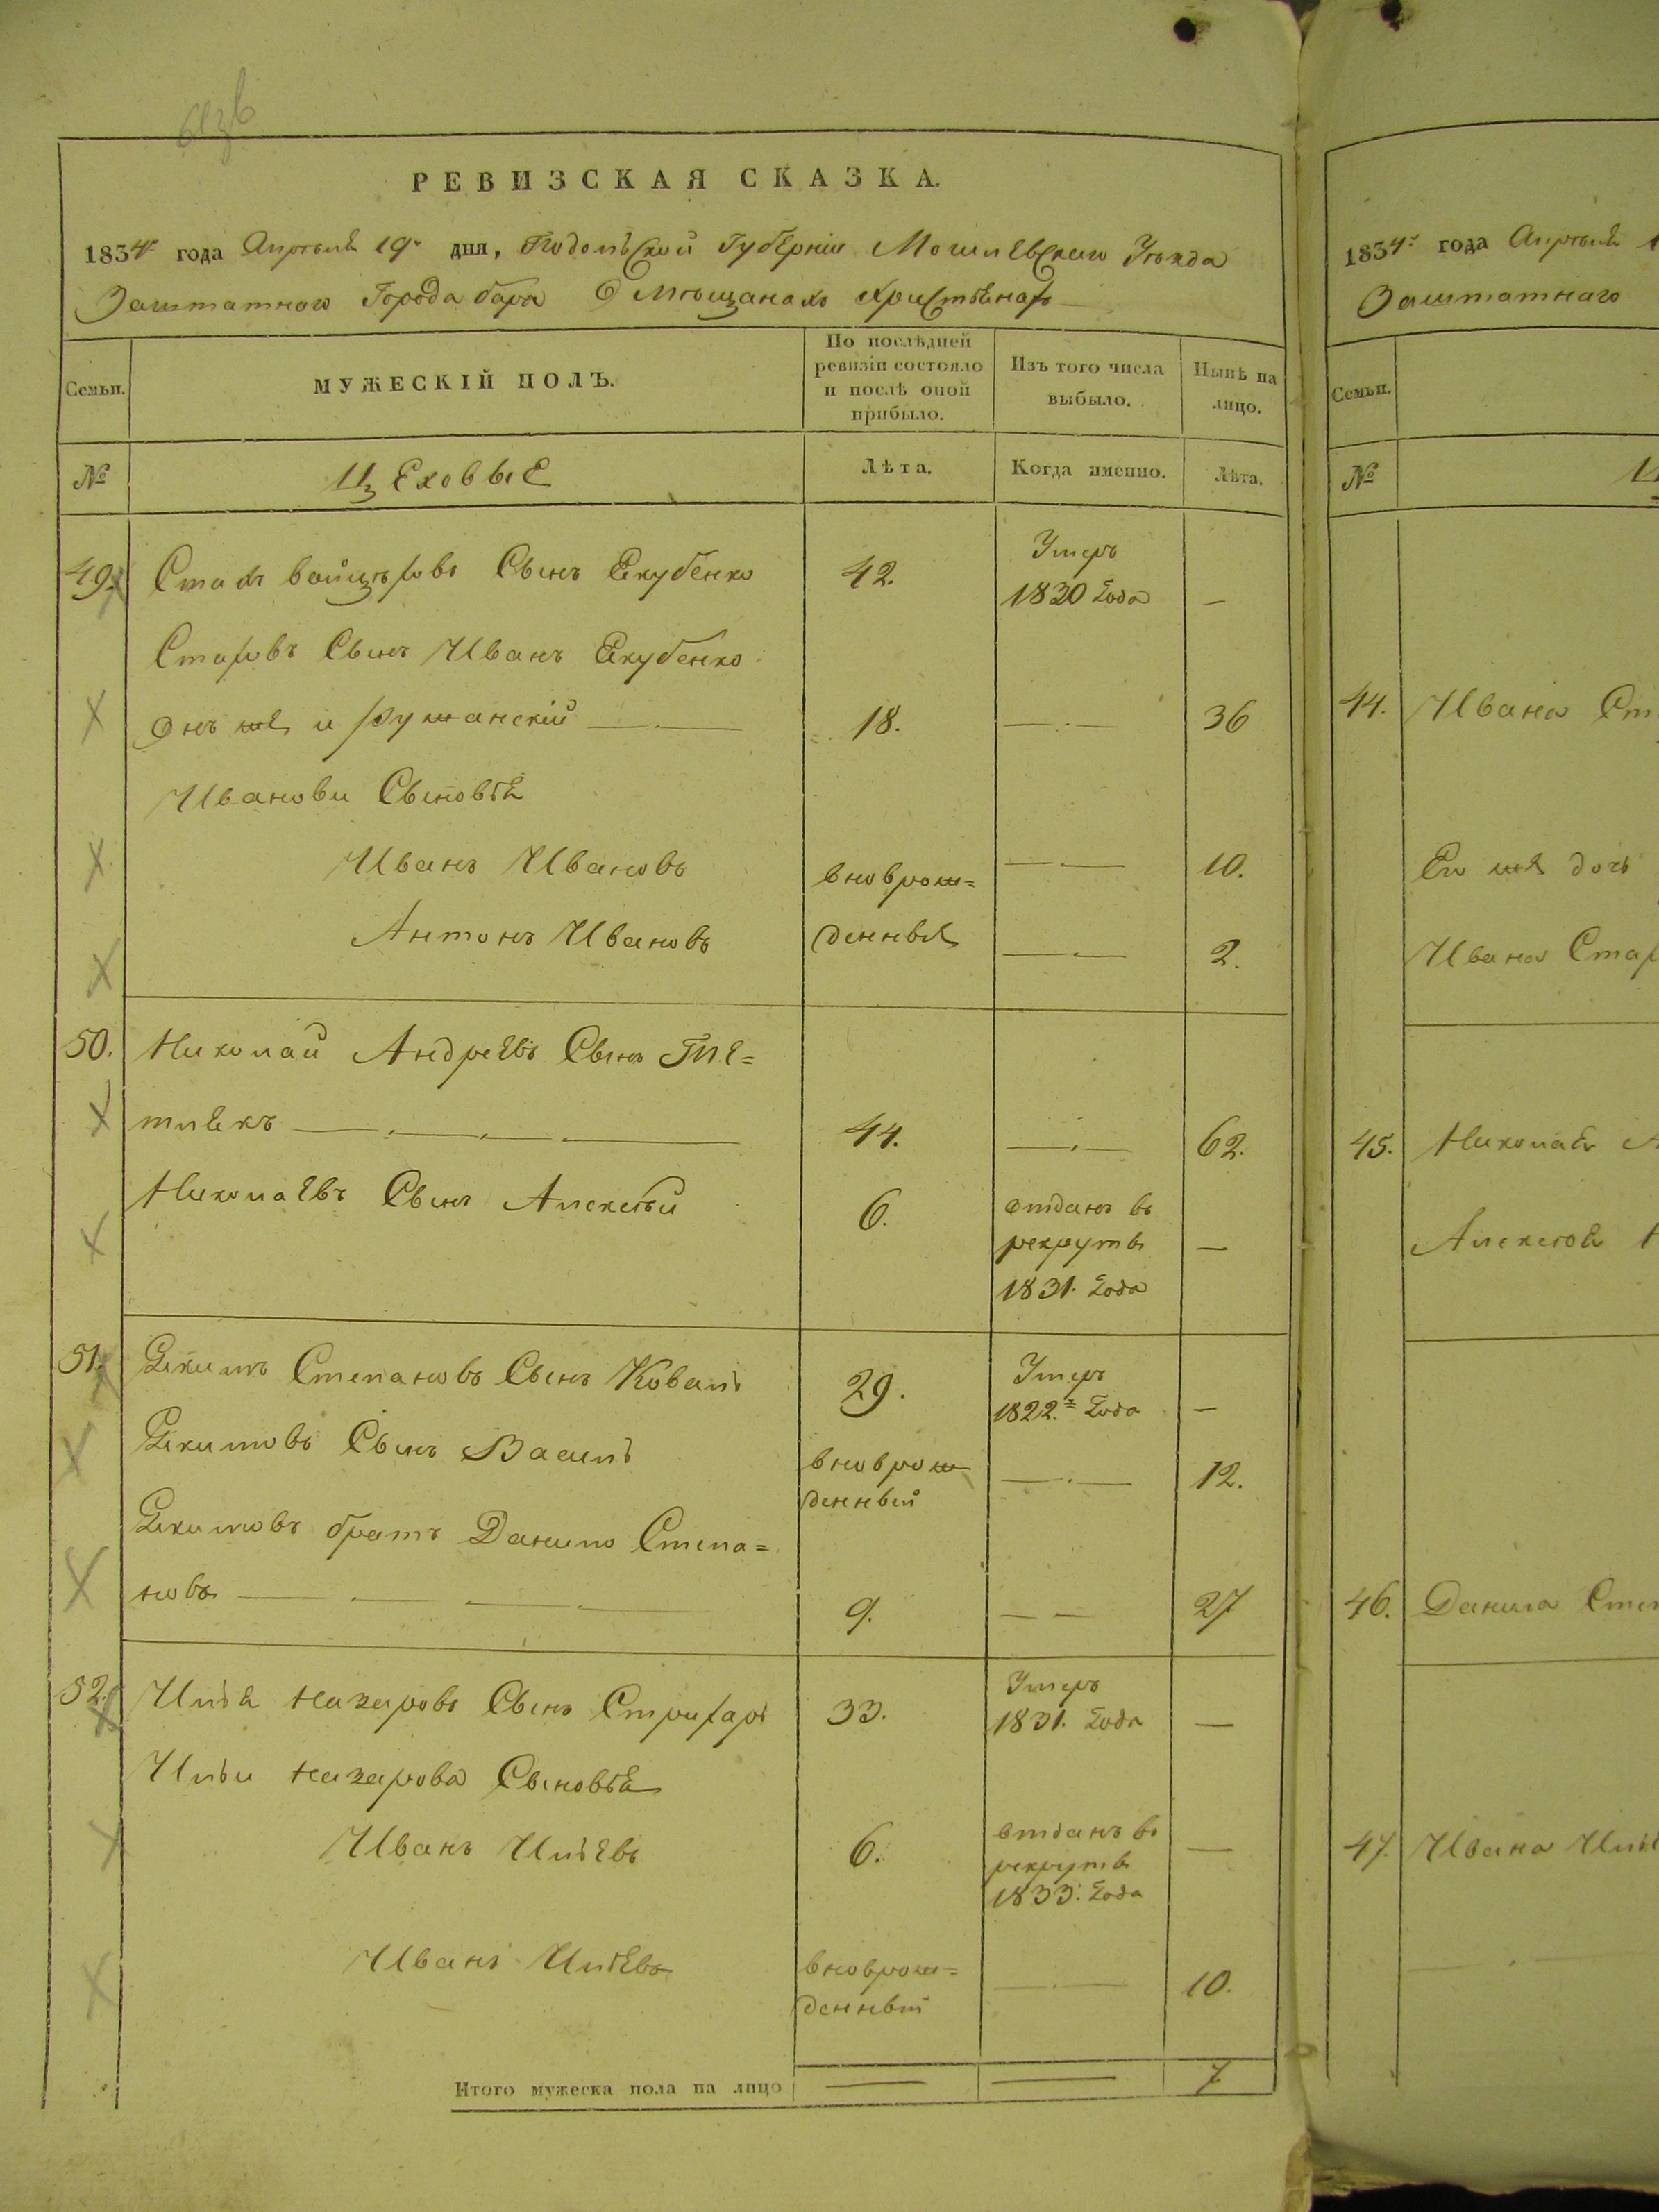 РЕВИЗСКАЯ СКАЗКА.
1834 года Апрѣля 19 дня, Подольской Губерніи Могилевскаго Уѣзда
Заштатнаго Города бара О мѣщанахъ христіянахъ
Семьи.
МУЖЕСКІЙ ПОЛЪ.
По послѣдней ревизіи состояло и послѣ оной прибыло.
Изъ того числа выбыло.
Нынѣ на лицо.
№
Цеховые
Лѣта.
Когда именно.
Лѣта.
49. войцѣховъ Сынъ Якубенко 42. Умеръ
1830 года —
Стаховъ Сынъ Иванъ Якубенко
онъ же и 18. — 36
Иванови Сыновья
Иванъ Ивановъ вноврож= — 10.
Антонъ Ивановъ денныя — 2.
50. Николай Андреевъ Сынъ Пле=
тлякъ 44. — 62.
Николаевъ Сынъ Алексѣй 6. отданъ въ
рекруты —
1831. года
51. Якимъ Степановъ Сынъ Коваль 29. Умеръ
1822. года —
Якимовъ Сынъ Василь вноврож
денный — 12.
Якимовъ братъ Данило Степа=
новъ 9. — 27
52. Илья Назаровъ Сынъ Стрихарь 33. Умеръ
1831. года —
Ильи Назарова Сыновья
Иванъ Ильевъ 6. отданъ въ —
рекруты
1833. года
Иванъ Ильевъ вноврож=
денный — 10.
Итого мужеска пола на лицо — — 7
1834 года Апрѣля
Заштатнаго
Семьи.
№
44. Ивана
Его же дочь
Ивана
45. Николая
Алексѣя
46. Данила
47. Ивана